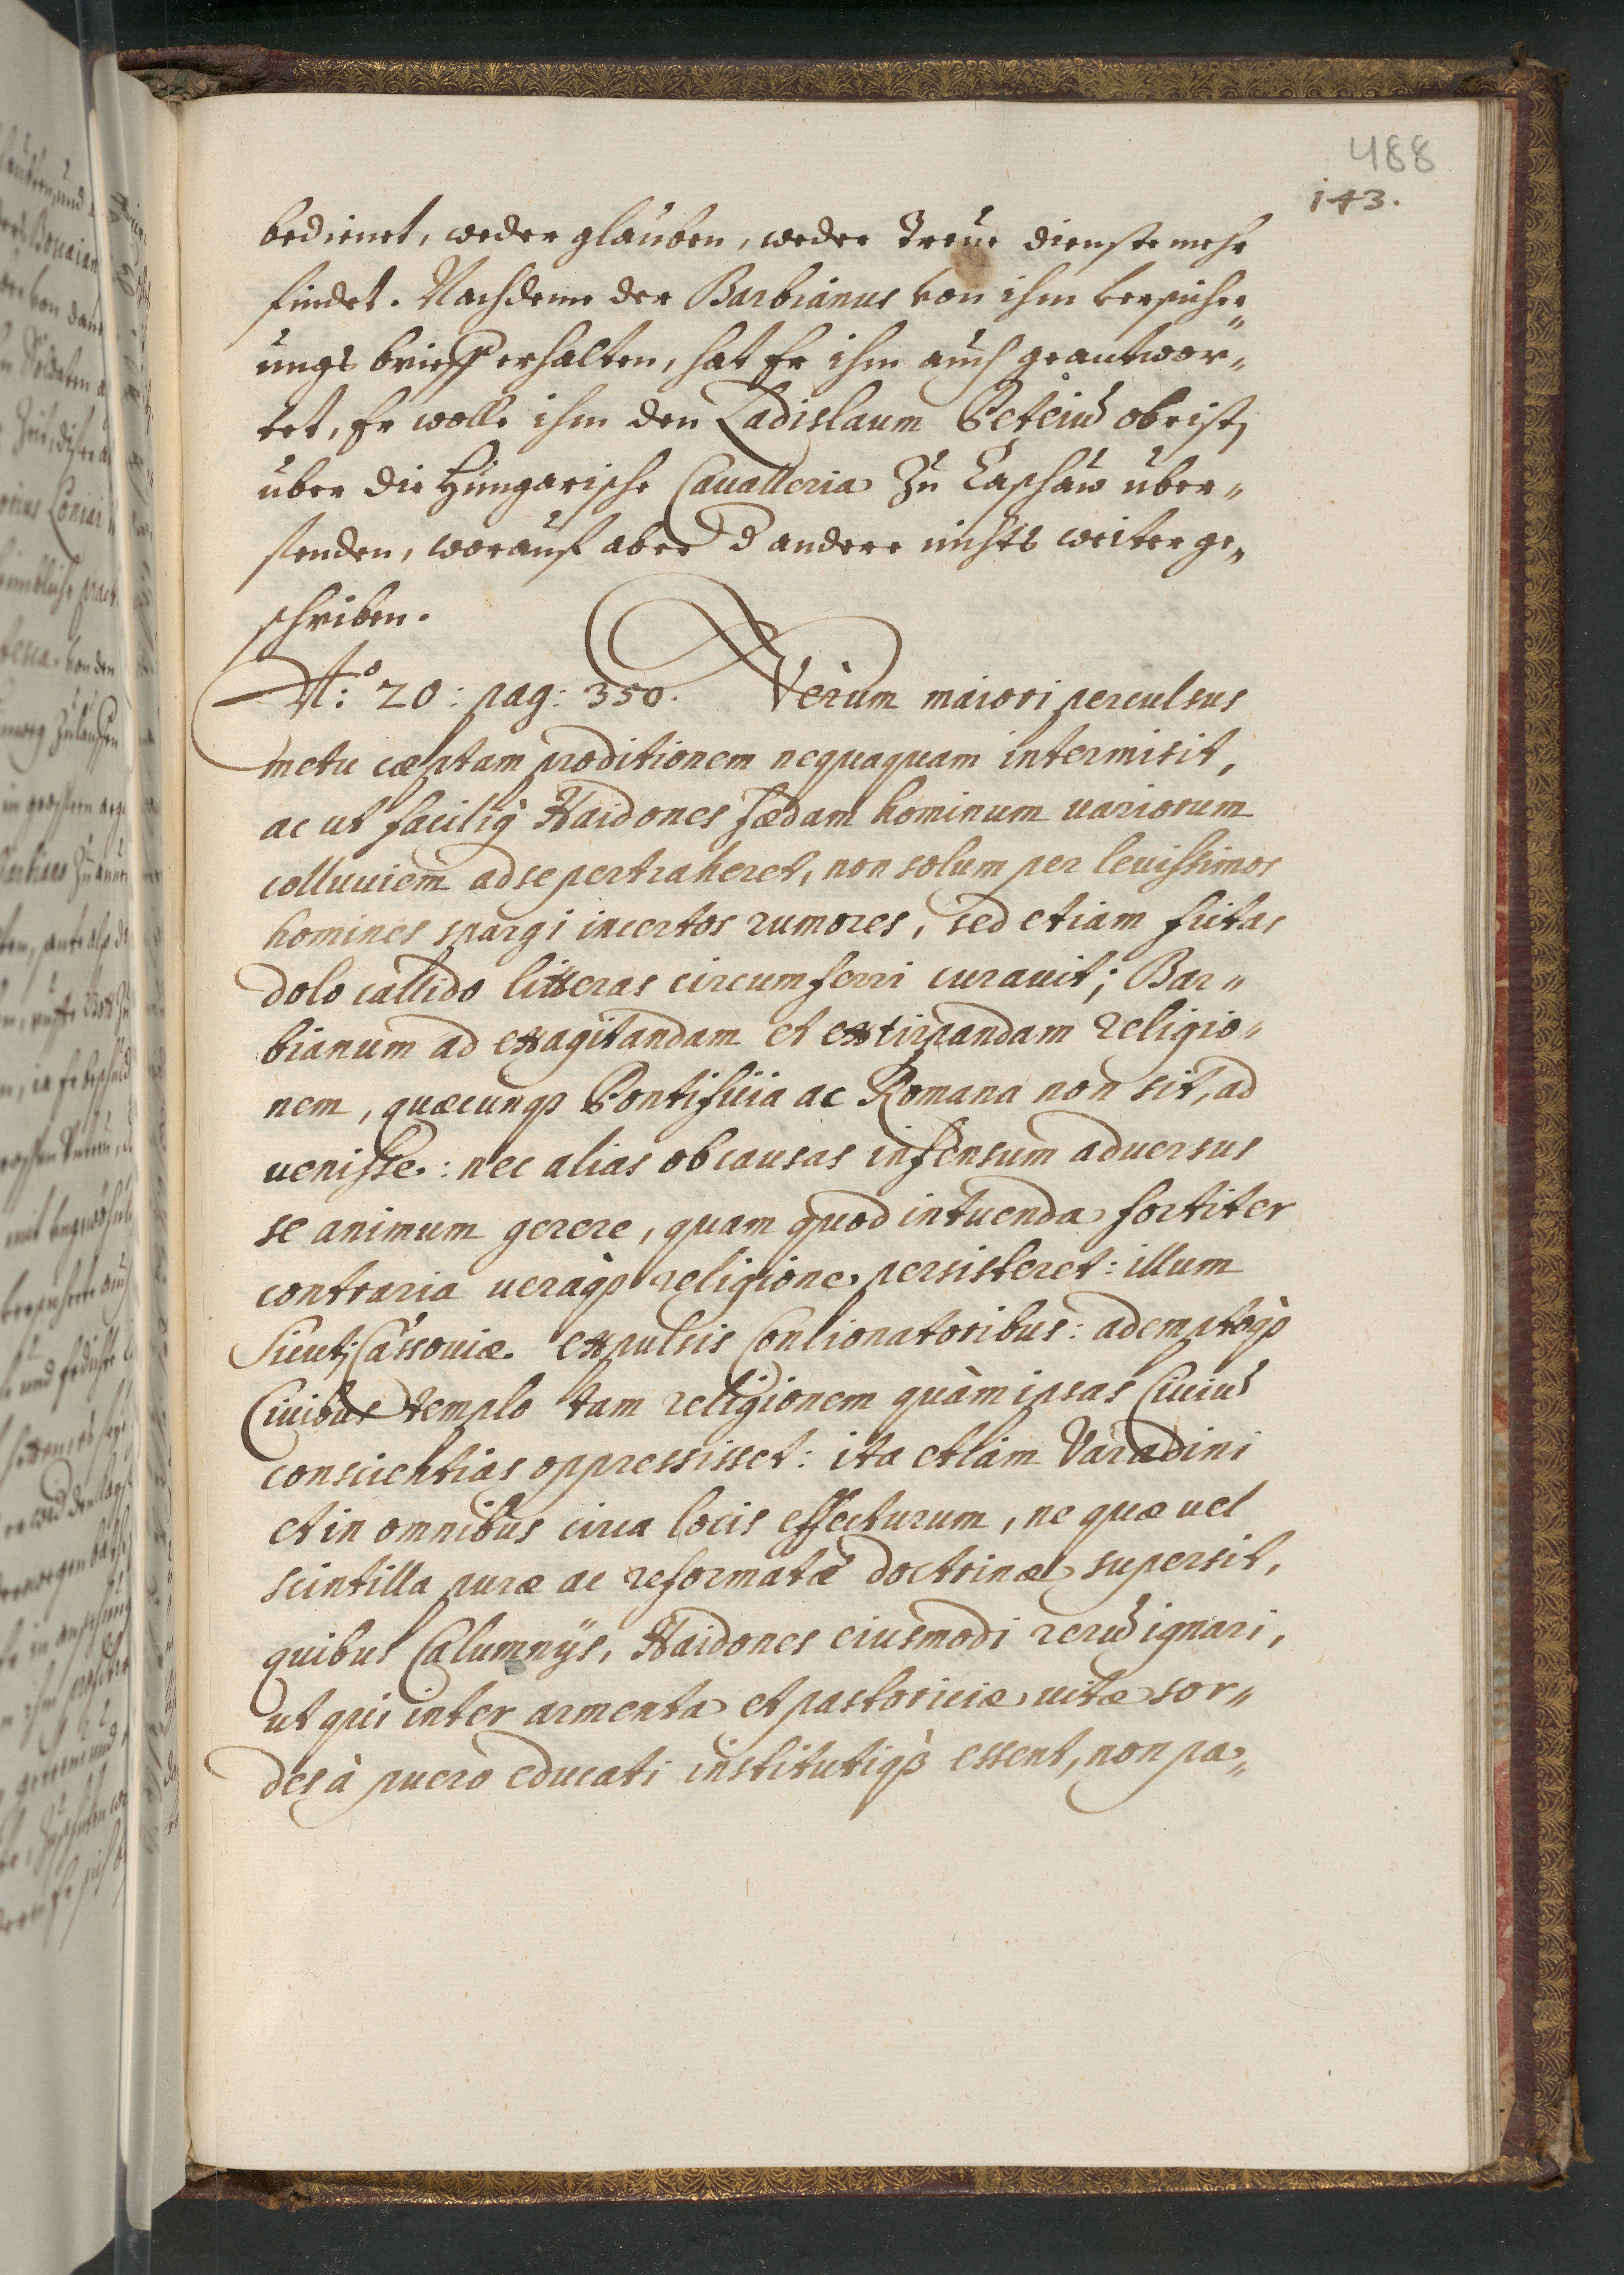 488
143.
bedienet, weder glauben, weder Treue dienste mehr
findet. Nachdeme der Barbianus von ihm versicher„
ungs brieff erhalten, hat Er ihm auch geantwor„
tet, Er wolle ihm den Ladislaum Peteiũ obrist
über die Hungarische Cavalleria zu Caschaw über„
senden, worauf aber d andere nichts weiter ge„
schriben.
Nº: 20: pag: 350. Verùm maiori perculsus
metu cæptam proditionem nequaquam intermisit,
ac ut facilig Haidones fædam hominum uariorum
colluuiem ad se pertraheret, non solum per leuissimos
homines spargi incertos rumores, sed etiam fictas
dolo callido litteras circumferri curauit; Bar„
bianum ad exagitandam et extirpandam religio„
nem, quæcunqꝫ Pontificia ac Romana non sit, ad
uenisse: nec alias ob causas infensum aduersus
se animum gerere, quam quod in tuenda fortiter
contraria ueràqꝫ religione persisteret: illum
Sicuti Cassouiæ expulsis Concionatoribus: ademptòqꝫ
Ciuibus templo tam religionem quàm ipsas Ciuiũ
conscientias oppressisset: ita etiam Varadini
et in omnibus circa locis effecturum, ne quæ uel
scintilla puræ ac reformatæ doctrinæ supersit,
quibus Calumnijs, Haidones eiusmodi rerũ ignari,
ut qui inter armenta et pastoriciæ uitæ sor„
des à puero educati institutiqꝫ essent, non pa„